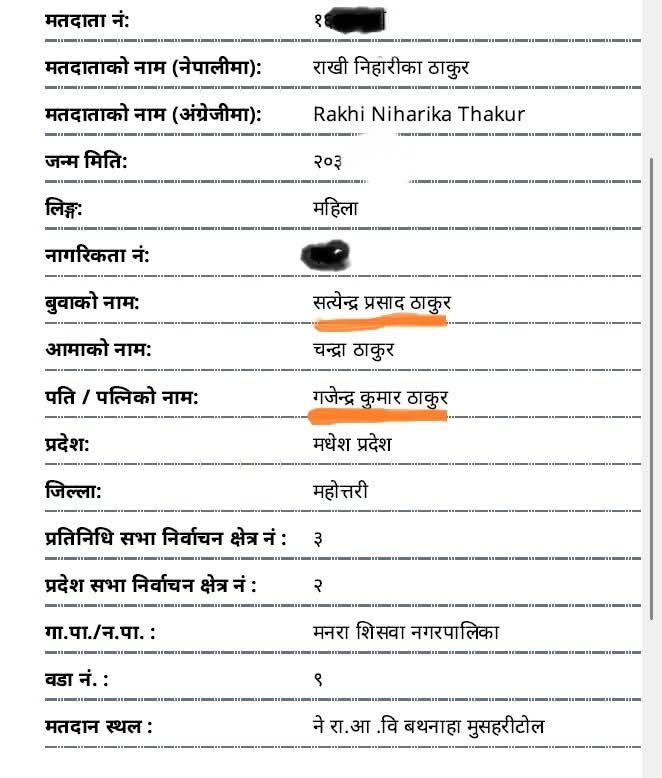 मतदाता नं: १
मतदाताको नाम (नेपालीमा): राखी निहारीका ठाकुर
मतदाताको नाम (अंग्रेजीमा): Rakhi Niharika Thakur
जन्म मिति: २०३
लिङ्ग: महिला
नागरिकता नं:
बुवाको नाम: सत्येन्द्र प्रसाद ठाकुर
आमाको नाम: चन्द्रा ठाकुर
पति / पत्निको नाम: गजेन्द्र कुमार ठाकुर
प्रदेश: मधेश प्रदेश
जिल्ला: महोत्तरी
प्रतिनिधि सभा निर्वाचन क्षेत्र नं : ३
प्रदेश सभा निर्वाचन क्षेत्र नं : २
गा.पा./न.पा. : मनरा शिसवा नगरपालिका
वडा नं. : ९
मतदान स्थल : ने रा.आ .वि बथनाहा मुसहरीटोल